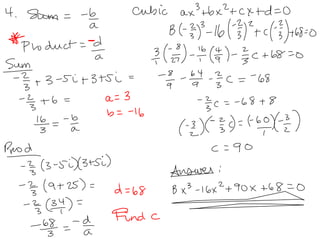 4. Sum = -b/a
* Product = -d/a
Sum
-2/3 + 3-5i + 3+5i =
-2/3 + 6 =
a=3
16/3 = -b/a
b=-16
Prod
-2/3 (3-5i)(3+5i)
-2/3 (9+25) =
d=68
-2/3 (34/1) =
-68/3 = -d/a
Find c
Cubic ax³+bx²+cx+d=0
3(-2/3)³-16(-2/3)²+c(-2/3)+68=0
3/1(-8/27) -16/1(4/9) -2/3c+68=0
-8/9 - 64/9 - 2/3c = -68
-2/3c = -68+8
(-3/2)(-2/3c) = (-60/1)(-3/2)
c = 90
Answer:
3x³-16x²+90x+68=0